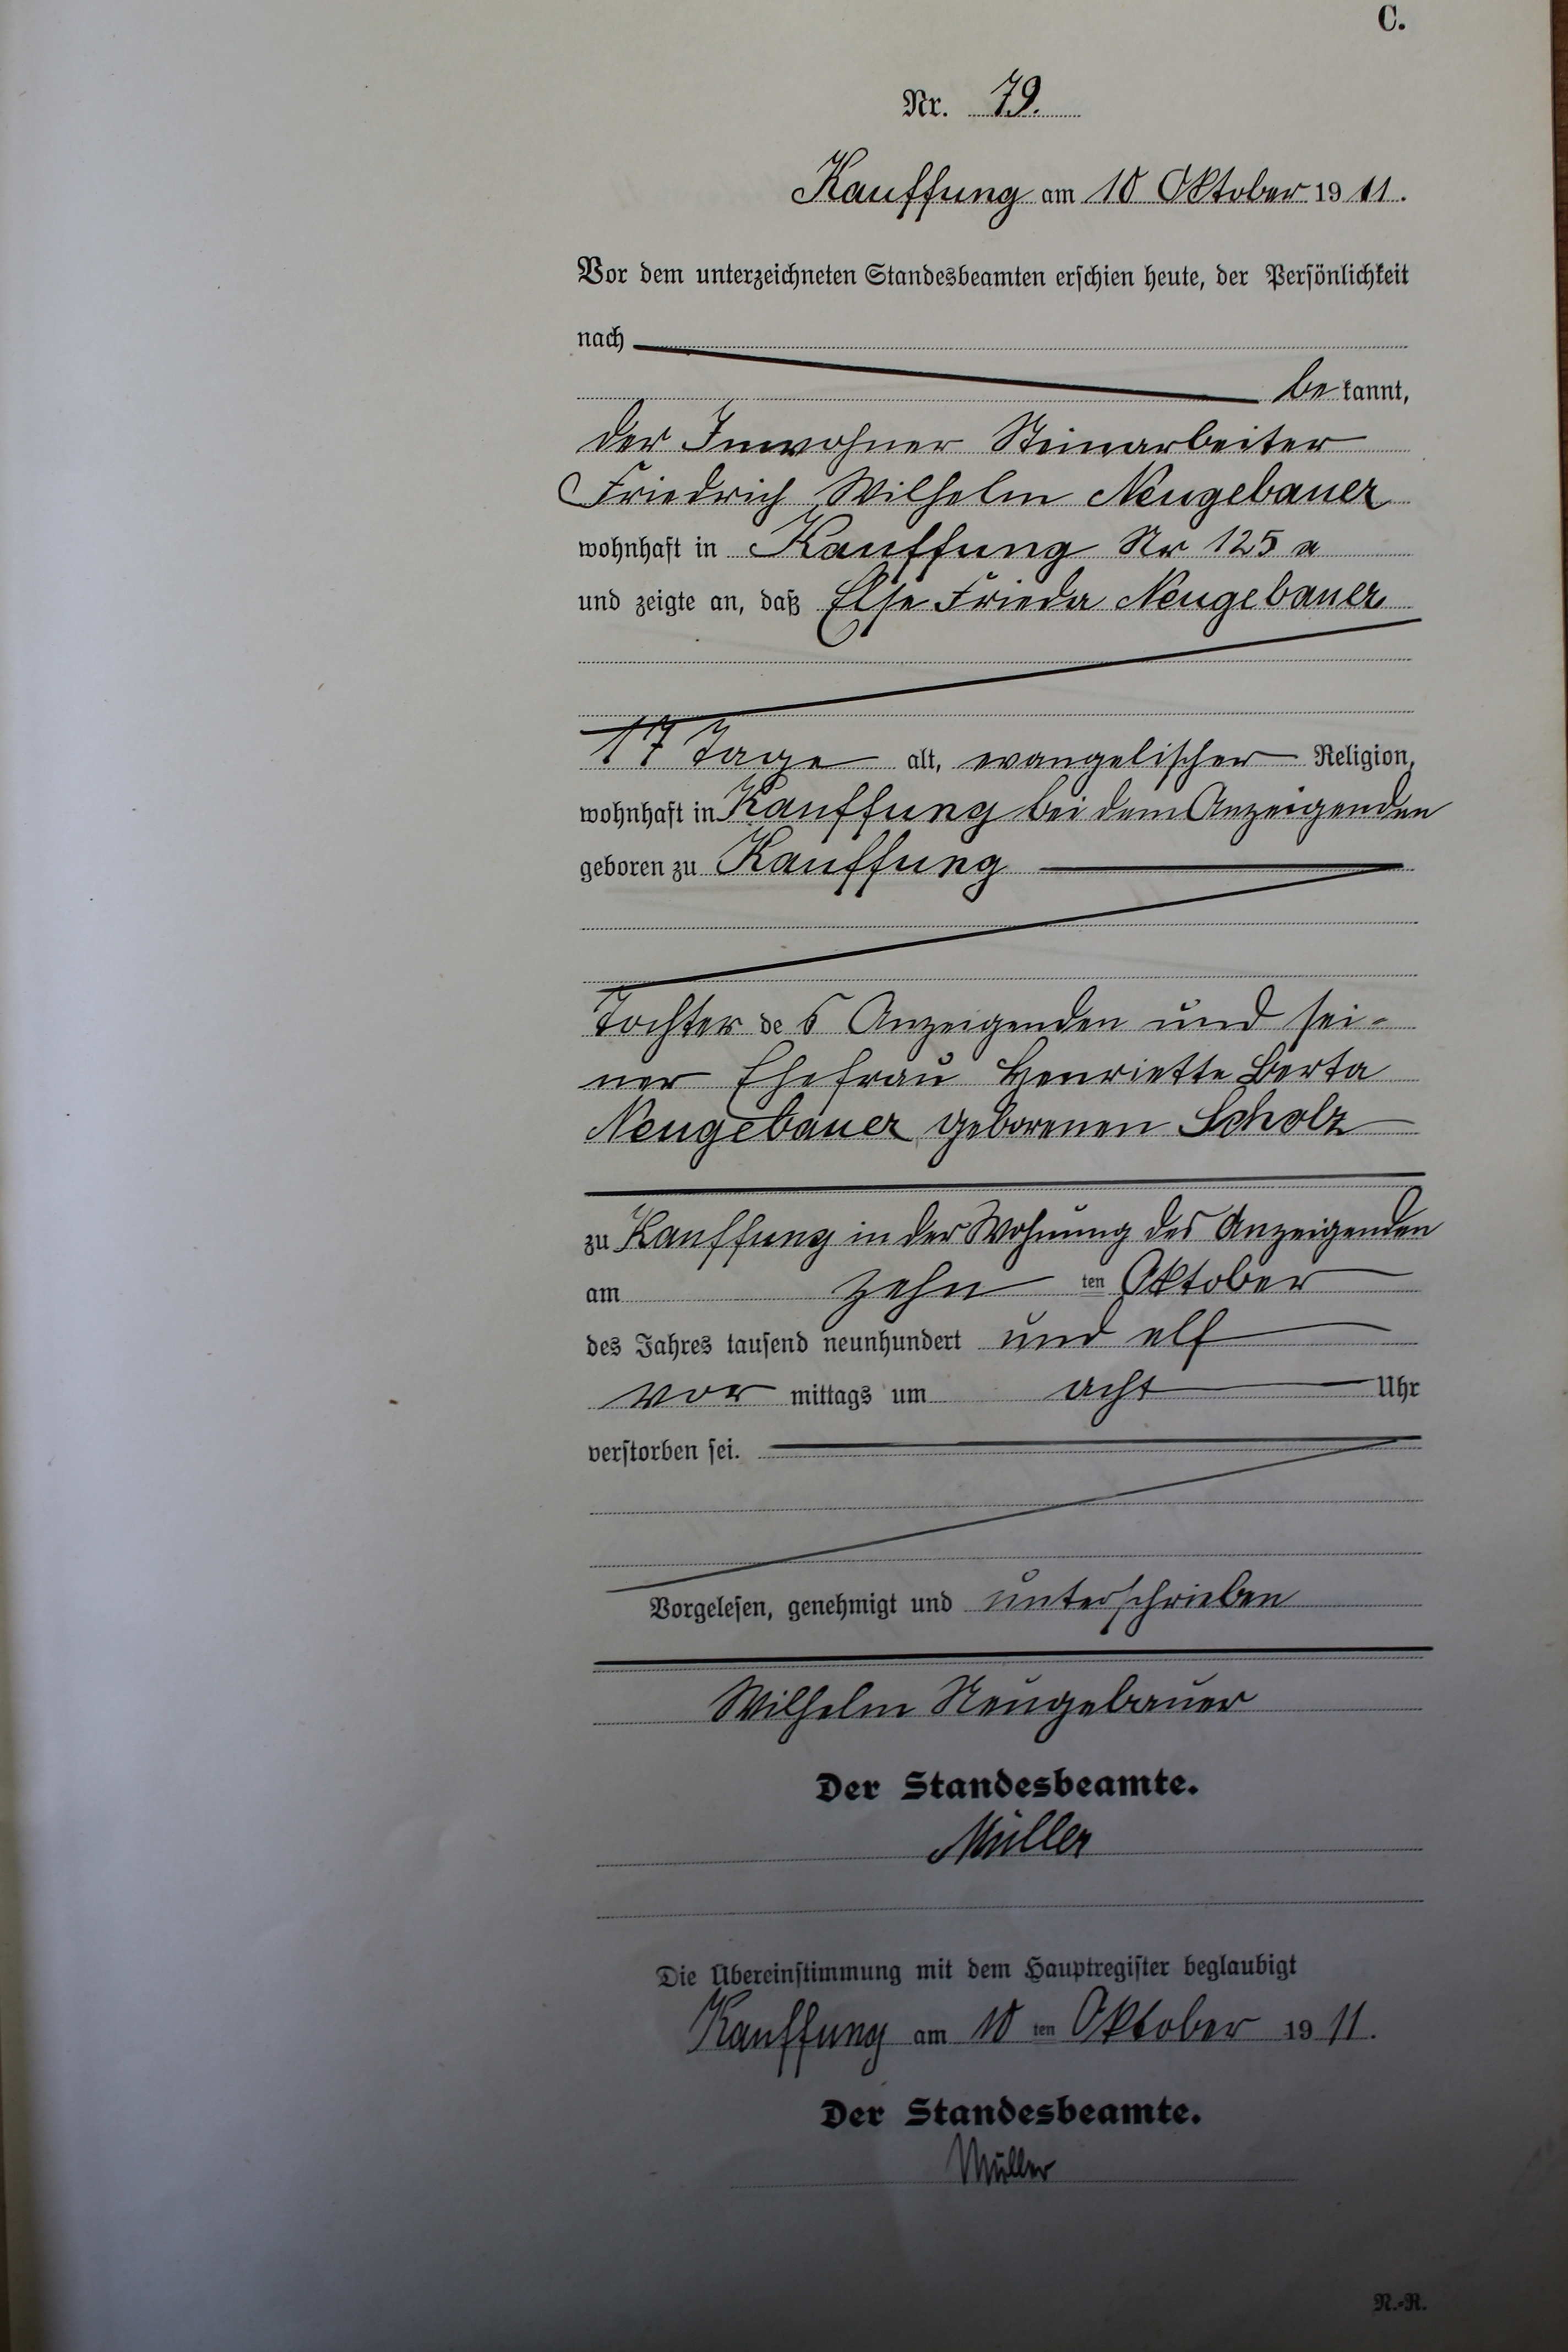 C.
Nr. 79.
Kauffung am 10 Oktober 1911.
Vor dem unterzeichneten Standesbeamten erschien heute, der Persönlichkeit
nach
bekannt,
der Inwohner Steinarbeiter
Friedrich Wilhelm Neugebauer
wohnhaft in Kauffung Nr 125 a
und zeigte an, daß Else Frieda Neugebauer
17 Tage alt, evangelischer Religion,
wohnhaft in Kauffung bei dem Anzeigenden
geboren zu Kauffung
Tochter des Anzeigenden und sei-
ner Ehefrau Henriette Berta
Neugebauer geborenen Scholz
zu Kauffung in der Wohnung des Anzeigenden
am zehn ten Oktober
des Jahres tausend neunhundert und elf
vor mittags um acht Uhr
verstorben sei.
Vorgelesen, genehmigt und unterschrieben
Wilhelm Neugebauer
Der Standesbeamte.
Müller
Die Übereinstimmung mit dem Hauptregister beglaubigt
Kauffung am 10 ten Oktober 1911.
Der Standesbeamte.
Müller
N.-R.